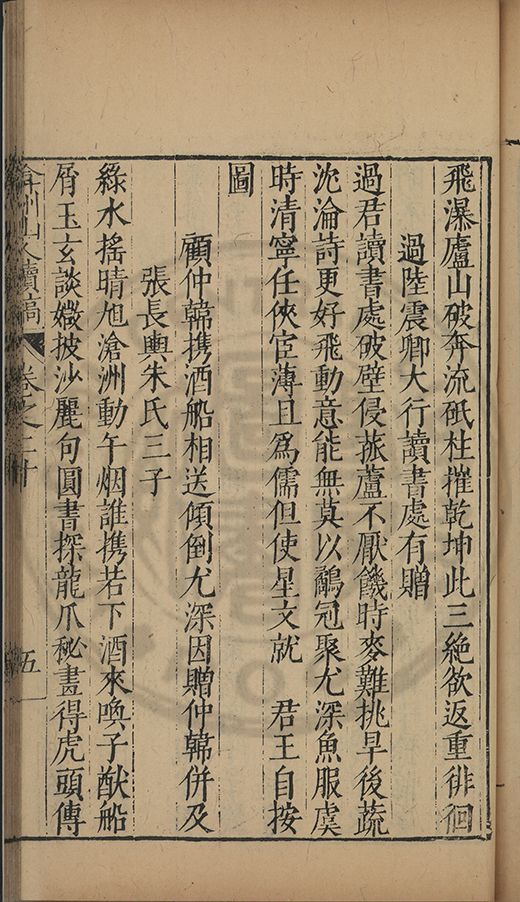 飛瀑廬山破奔流砥柱摧乾坤此三絶欲返重徘徊
過陸震卿大行讀書處有贈
過君讀書處破壁侵菰蘆不厭饑時麥難挑旱後蔬
沈淪詩更好飛動意能無莫以鷸冠聚尤深魚服虞
時清寧任俠宦薄且爲儒但使星文就 君王自按
圖
顧仲韓携酒船相送傾倒尤深因贈仲韓併及
張長輿朱氏三子
綠水搖晴旭滄洲動午烟誰携若下酒來喚子猷船
屑玉玄談孅披沙麗句圓書探龍爪秘畫得虎頭傳
弇州山人續稿 卷之二十 五